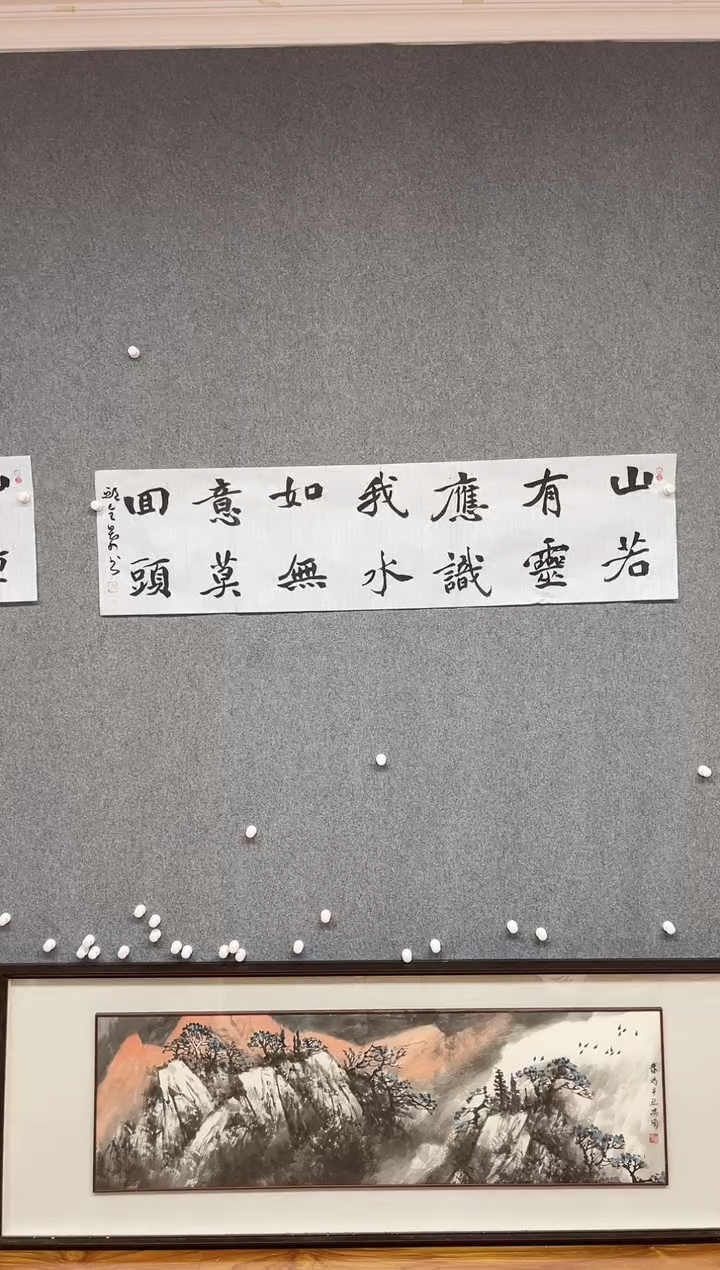 山若
有靈
應識
我水
如無
意莫
回頭